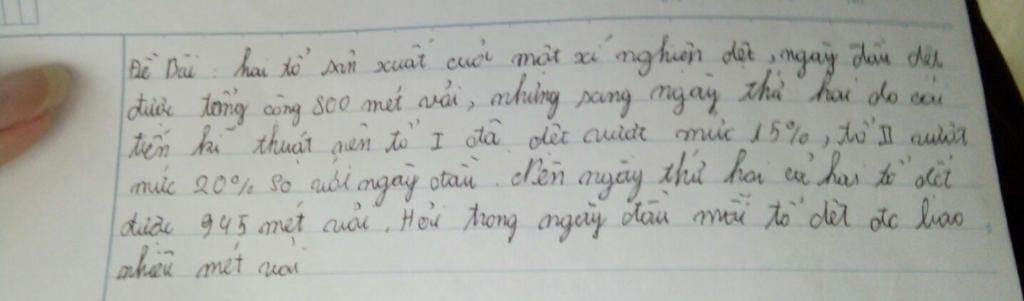 Đề Bài : hai tổ sản xuất cuối một xí nghiệp dệt, ngày đầu dệt
được tổng cộng 800 mét vải, nhưng sang ngày thứ hai do cải
tiến kĩ thuật nên tổ I đã dệt vượt mức 15%, tổ II vượt
mức 20% so với ngày đầu. Nên ngày thứ hai cả hai tổ dệt
được 945 mét vải. Hỏi trong ngày đầu mỗi tổ dệt đc bao
nhiêu mét vải